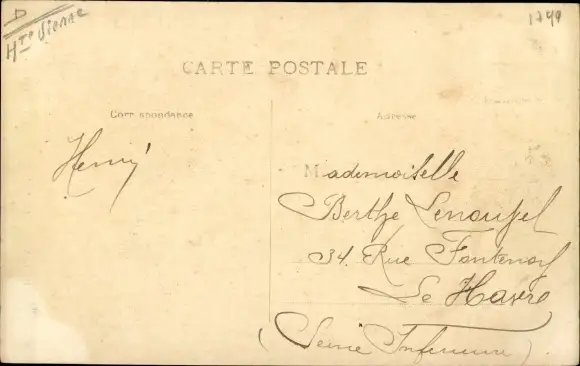 D
Hte Vienne
1749
CARTE POSTALE
Correspondance
Adresse
Henry
Mademoiselle
Berthe Lenoufel
34. Rue Fontenoy
Le Havre
(Seine Inférieure)